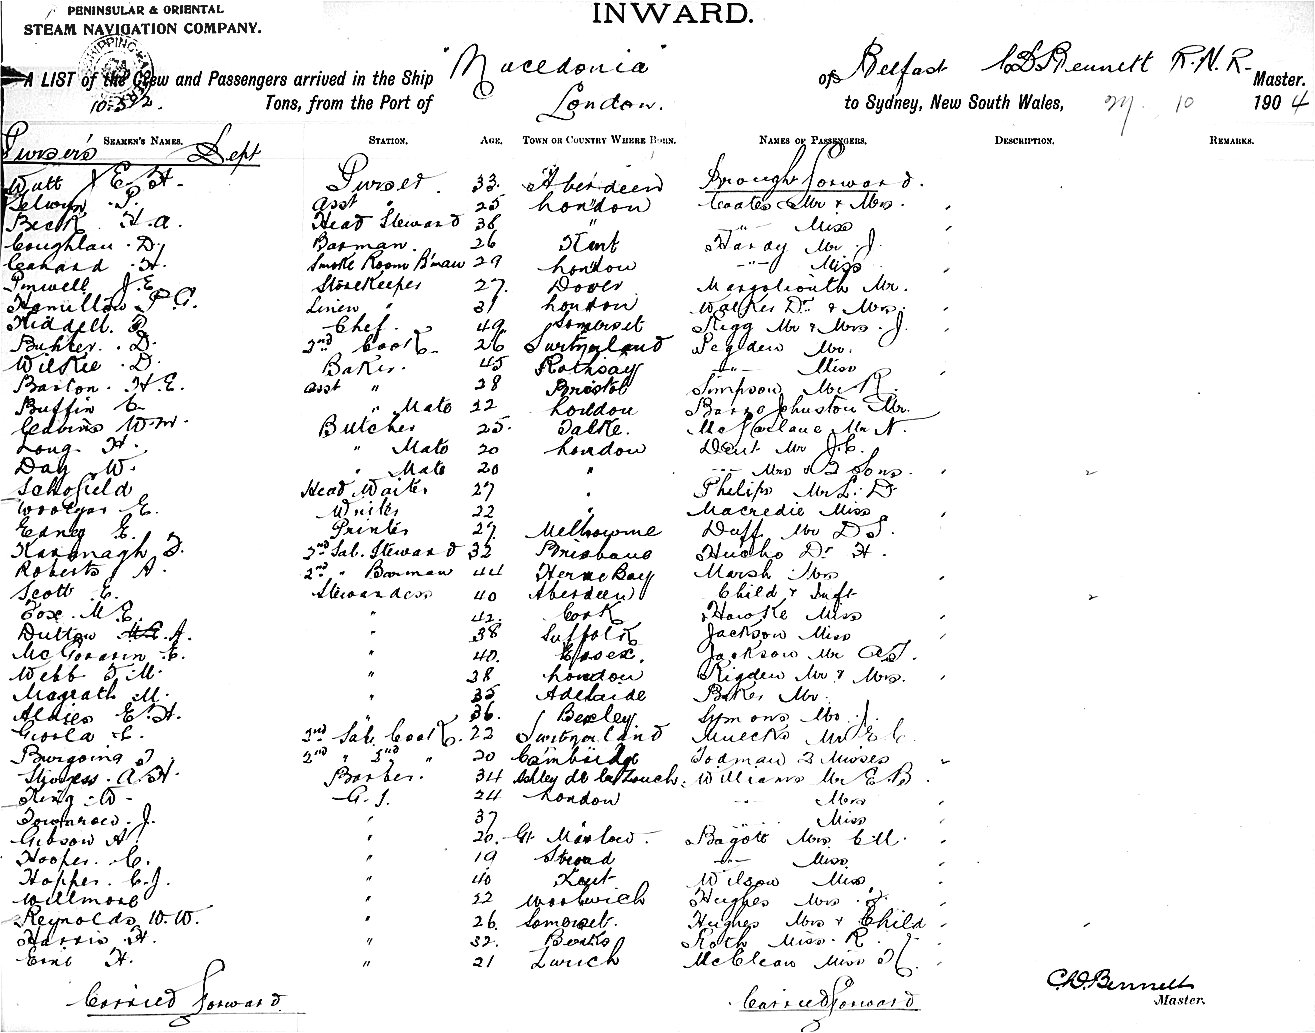 PENINSULAR & ORIENTAL
STEAM NAVIGATION COMPANY.
INWARD.
A LIST of the Crew and Passengers arrived in the Ship "Macedonia" of Belfast C D Bennett R.N.R. Master.
10.522. Tons, from the Port of London. to Sydney, New South Wales, 27. 10 1904
SEAMEN'S NAMES. STATION. AGE. TOWN OR COUNTRY WHERE BORN. NAMES OF PASSENGERS. DESCRIPTION. REMARKS.
Purser's Dept
Watt J E H. Purser. 33. Aberdeen Brought forward.
Selwyn . P. Asst " 25 London Coates Mr & Mrs.
Beck H. A. Head Steward 38 " " Miss
Coughlan . D. Barman. 26 Kent Hardy Mr. J.
H. Smoke Room B'man 29 London " Miss
J. E. Storekeeper 27. Dover Mr.
Hamilton P. G. Linen " 31 London Walker Dr. & Mrs.
Riddell. R. Chef. 49. Somerset Rigg Mr & Mrs. J.
Buhler . D. 2nd Cook. 26 Switzerland Mr.
Wilkie . D. Baker. 45 Rothsay " Miss
Barton. H. E. Asst " 28 Bristol Simpson Mr R.
Buffin C. " Mate 22 London Johnston Mr.
Wm. Butcher 25. McFarlane Mr N.
Long. H. " Mate 20 London Dent Mr J. C.
Day W. " Mate 20 " " Mrs & 2 Sons.
Schofield Head Waiter 27 " Philips Mr L. D
E. Writer 22 " Macredie Miss
Edney E. Printer 27. Melbourne Duff Mr D S.
Kavanagh D. 2nd Sal. Steward 32 Brisbane Dr H.
Roberts A. 2nd " Barman 44 Herne Bay Marsh Mrs
Scott E. Stewardess 40 Aberdeen Child & Inft
Fox. M E. " 42. Cork Hawke Miss
Dutton A. " 38 Suffolk Jackson Miss
E. " 40. Essex. Jackson Mr A J.
Webb T. M. " 28 London Rigden Mr & Mrs.
Magrath M. " 35 Adelaide Baker Mr.
E. H. " 36. Bexley Symons Mr J.
C. 2nd Sal. Cook. 22 Switzerland Muecke Mr E. C.
Burgoing J 2nd " 2nd " 20 Cambridge Todman 2 Misses
A. H. Barber. 34 Ashley de la Zouch. Williams Mr E B.
King W. G. S. 24 London " Mrs
Townrow. J. " 37 " " Miss
Gibson A " 20. Gt Marlow. Bagott Mrs C M.
Hooper. C. " 19 Stroud " Miss
Hopper. C. J. " 40 Kent Wilson Miss
Willmore " 22 Woolwich Hughes Mrs J.
Reynolds W. W. " 26. Somerset. Hughes Mrs & Child
Harris H. " 32. Berks Roth Miss. R.
H. " 21 Zurich McClean Miss H.
Carried forward Carried forward C. D. Bennett
Master.